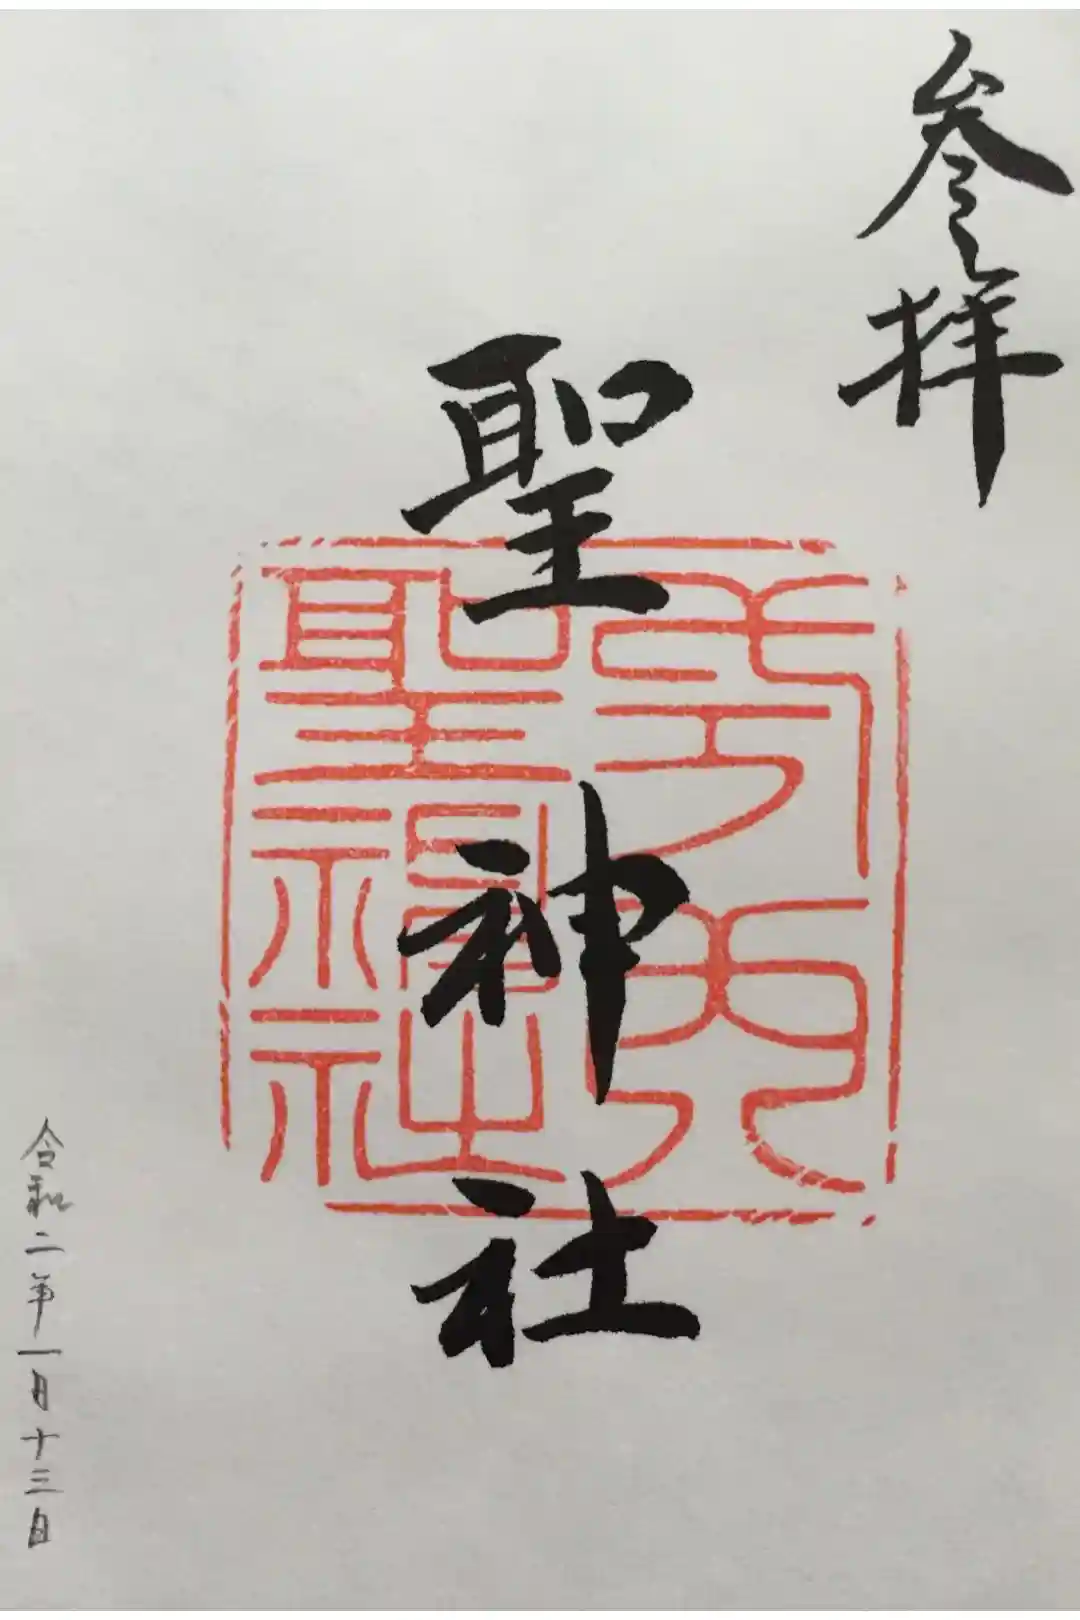 参拝
聖神社
聖神社
令和二年一月十三日